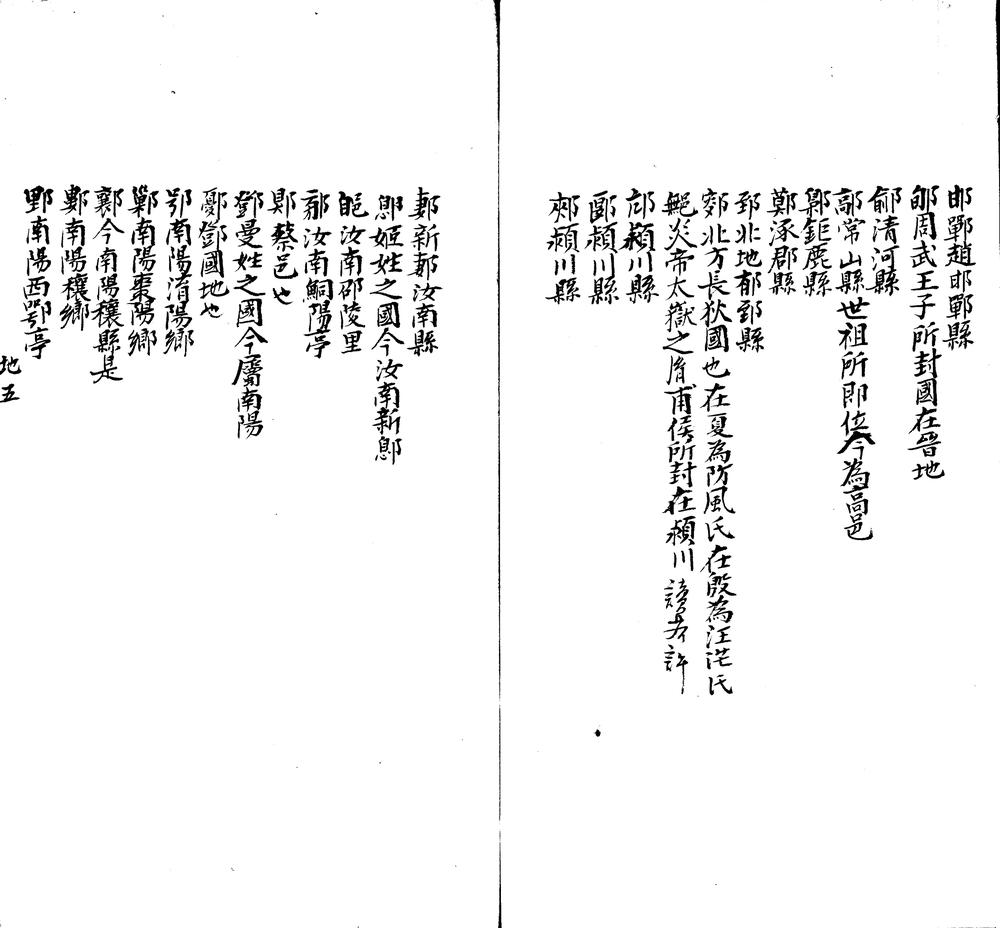 邯鄲趙邯鄲縣
郇周武王子所封國在晉地
鄃清河縣
鄗常山縣世祖所即位今為高邑
鄡鉅鹿縣
鄚涿郡縣
郅北地郁郅縣
鄋北方長狄國也在夏為防風氏在殷為汪芒氏
鄦炎帝太嶽之胤甫侯所封在潁川讀若許
邟潁川縣
郾潁川縣
郟潁川縣
郪新郪汝南縣
鄎姬姓之國今汝南新鄎
郋汝南邵陵里
䣙汝南鮦陽亭
郹蔡邑也
鄧曼姓之國今屬南陽
鄾鄧國地也
郢南陽淯陽鄉
鄛南陽棗陽鄉
䣋今南陽穰縣是
䣚南陽穰鄉
郢南陽西鄂亭
地五